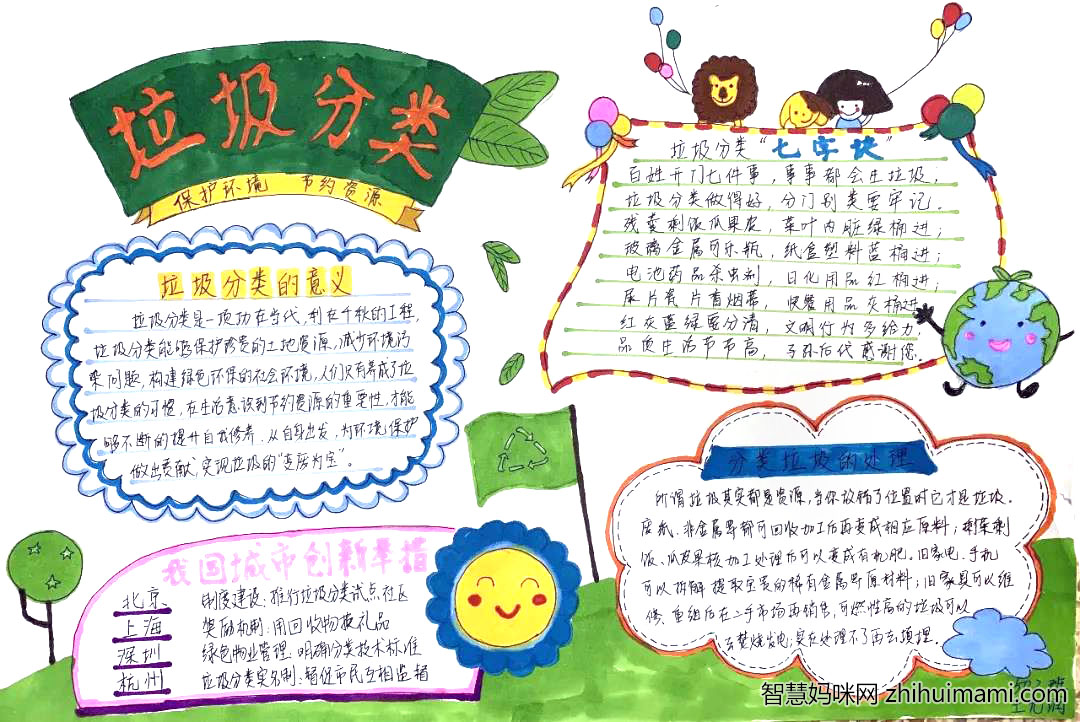 垃圾分类
保护环境 节约资源
垃圾分类的意义
垃圾分类是一项功在当代,利在千秋的工程,
垃圾分类能够保护珍贵的土地资源,减少环境污
染问题,构建绿色环保的社会环境,人们只有养成了垃
圾分类的习惯,在生活意识到节约资源的重要性,才能
够不断的提升自我修养.从自身出发,为环境保护
做出贡献,实现垃圾的“变废为宝”。
我国城市创新举措
北京、 制度建设:推行垃圾分类试点社区
上海 奖励机制:用回收物换礼品
深圳 绿色物业管理 明确分类技术标准
杭州 垃圾分类实名制:督促市民互相监措
垃圾分类“七字诀”
百姓开门七件事,事事都会生垃圾,
垃圾分类做得好,分门别类要牢记。
残委剩饭瓜果皮,菜叶内脏绿桶进;
玻璃金属可乐瓶,纸盒塑料蓝桶进;
电池药品杀虫剂,日化用品红桶进;
尿片瓷片香烟蒂,快餐用品灰桶进,
红灰蓝绿要分清,文明行为多给力,
品质生活节节高,子孙后代感谢您。
分类垃圾的处理
所谓垃圾其实都是资源.当你放错了位置时它才是垃圾.
废纸、非金属等都可回收加工后再变成相应原料;剩菜剩
饭、瓜皮果核加工处理后可以变成有机肥.旧家电、手机
可以拆解提取宝贵的稀有金属等原材料;旧家具可以维
修、重组后在二手市场再销售,可燃性高的垃圾可以
去焚烧发电;实在处理不了再去填埋.
智慧妈咪网 zhihuimami.com